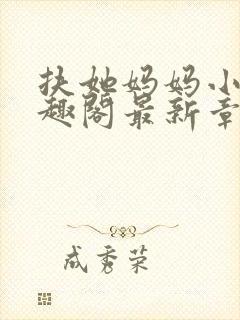 扶她妈妈小
趣阁最新章
成秀荣